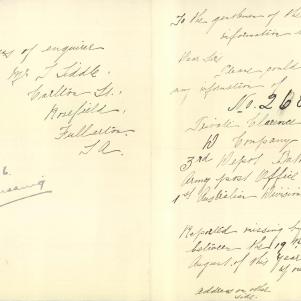 ss of enquirer
Mr L Liddle
Carlton St.
Rosefield
Fullarton
S A.
6.
missing
To the gentlemen of the
information
Dear Sir
Please could
any information of
No. 268
Private Clarence
D Company
3rd Depot Batt
Army post Office
1st Australian Division
Reported missing b
between the 19th
August of this year
you
address on other
side.